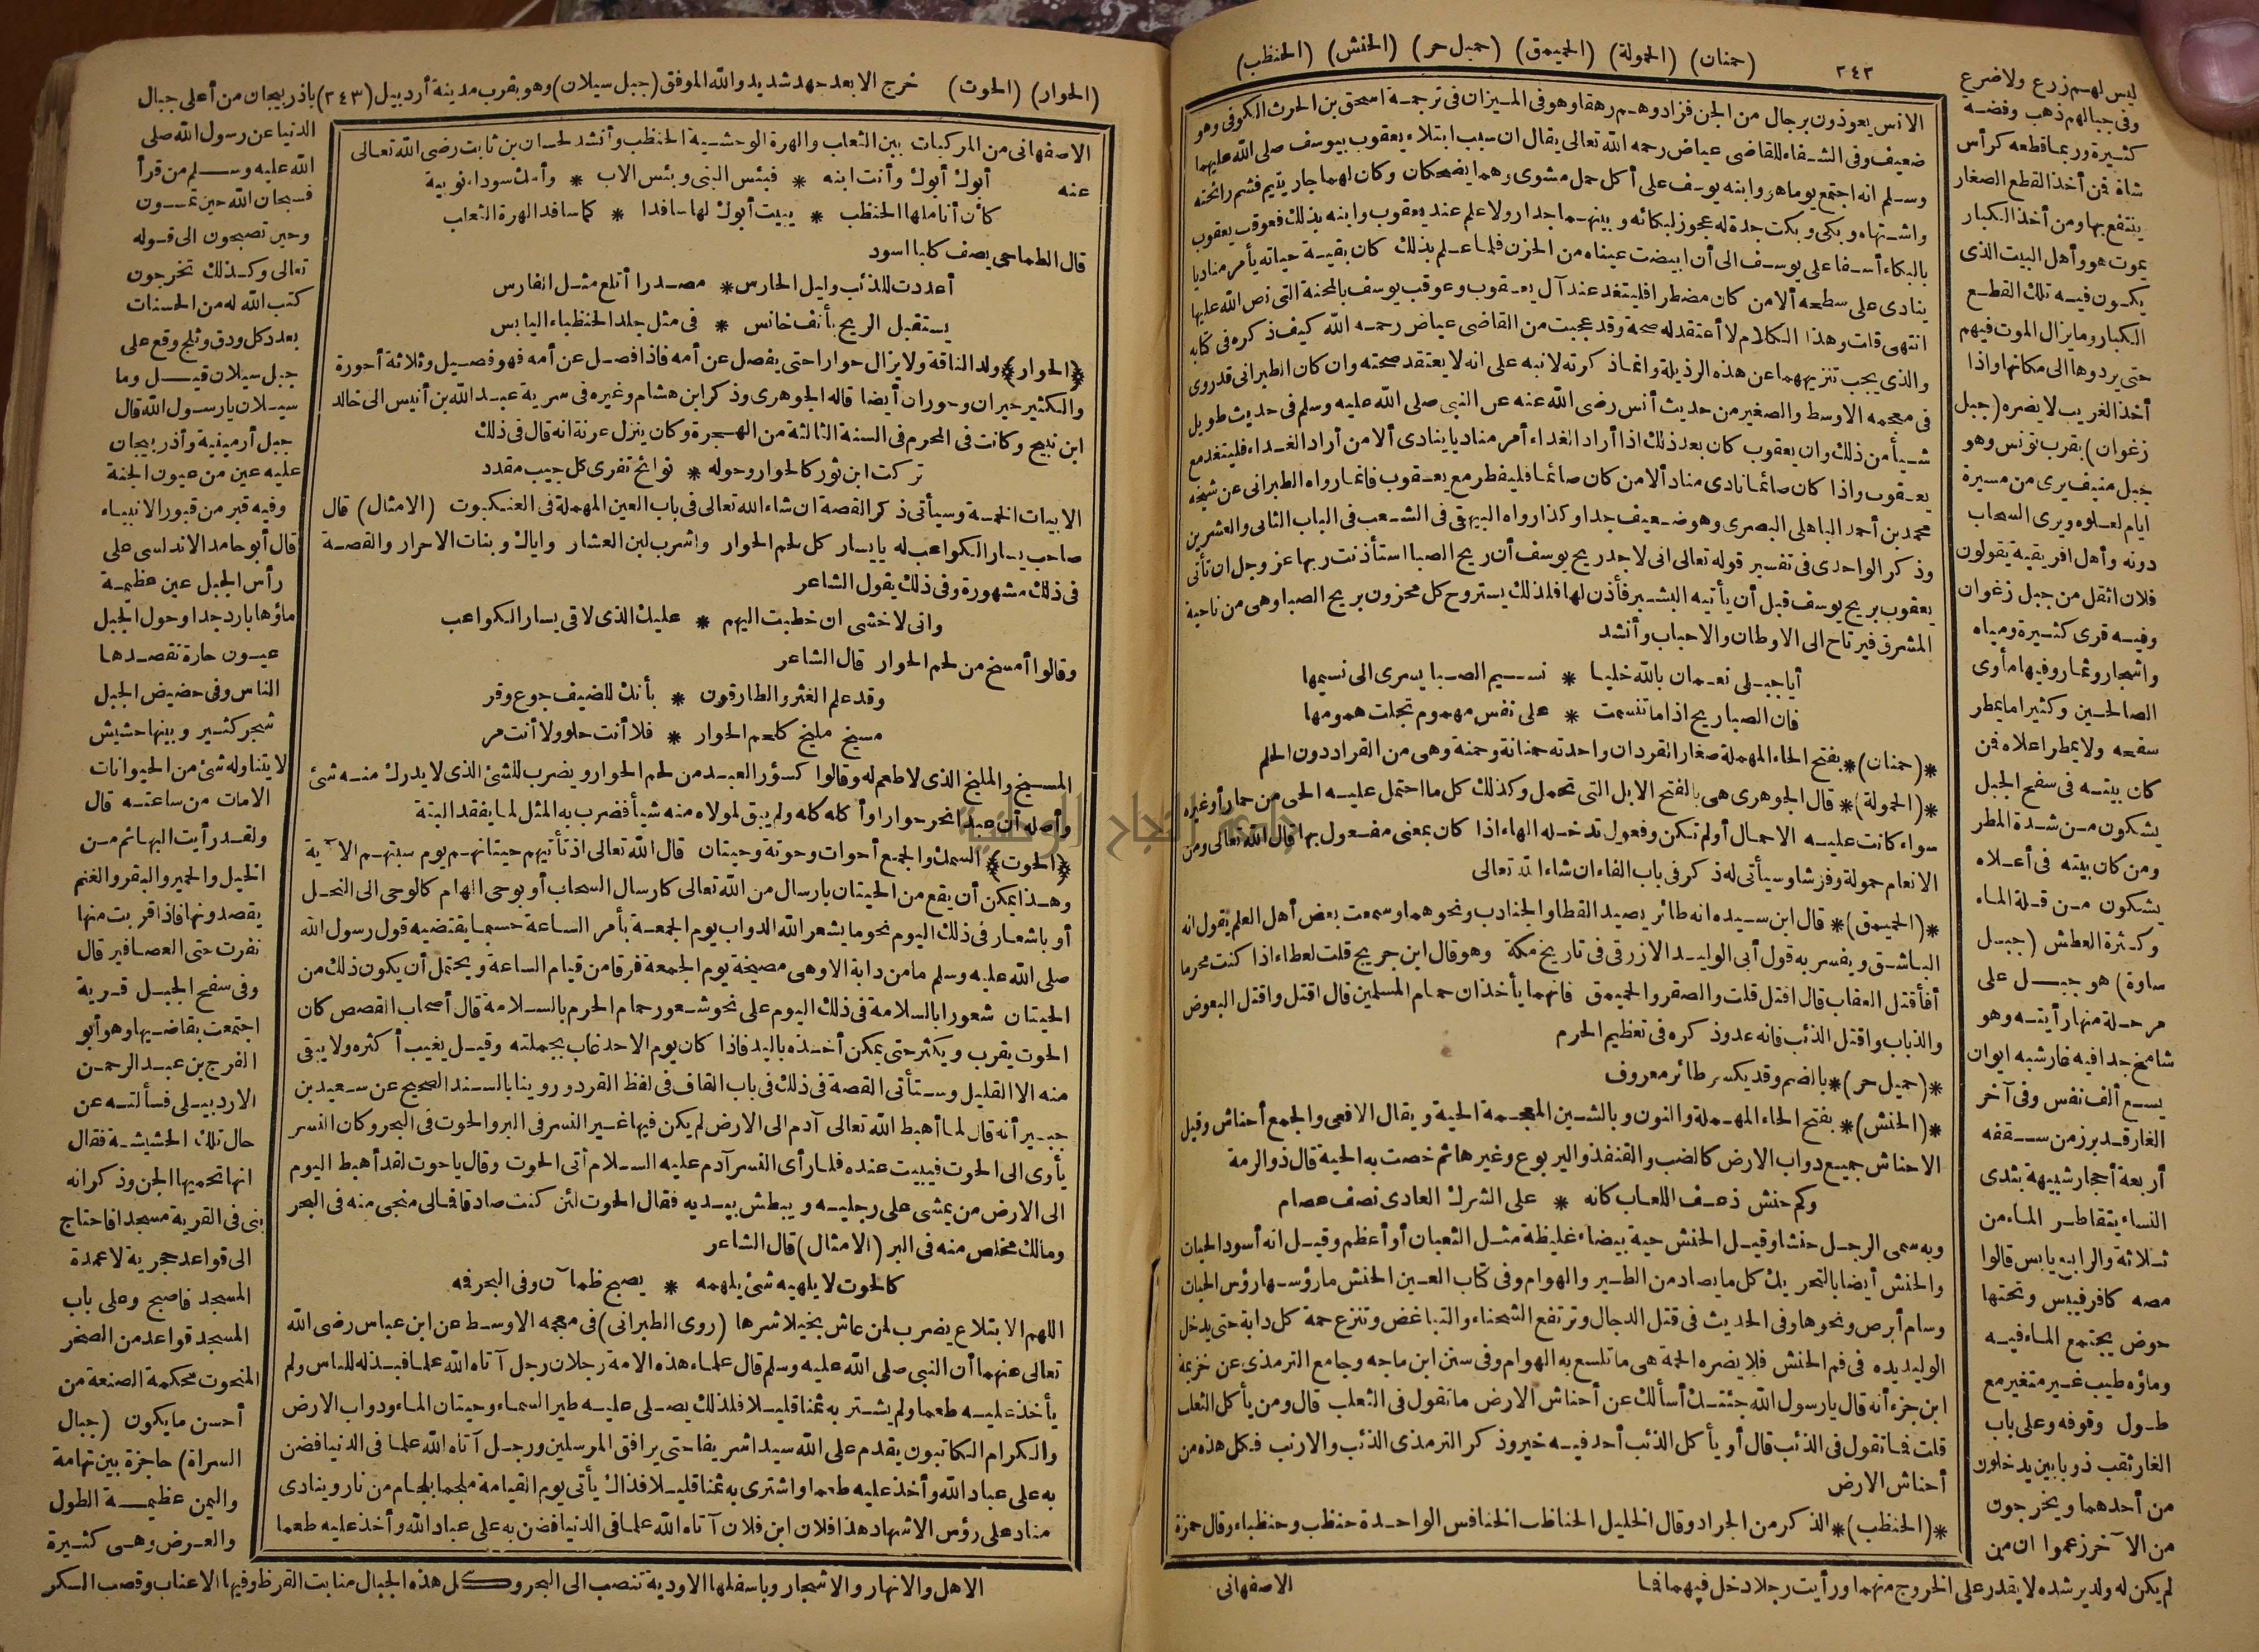 (حمنان) (الحمولة) (الحميمق) (حميل حر) (الحنش) (الحنظب)
٢٤٢
الانس يعوذون برجال من الجن فزادوهم رهقا وهو فى الميزان فى ترجمة اسحق بن الحرث الكوفى وهو
ضعيف وفى الشفاء للقاضى عياض رحمه الله تعالى يقال ان سبب ابتلاء يعقوب بيوسف صلى الله عليهما
وسلم انه اجتمع يوما هو وابنه يوسف على أكل حمل مشوى وهما يضحكان وكان لهما جار يتيم فشم رائحته
واشتهاه وبكى وبكت جدة له عجوز لبكائه وبينهما جدار ولا علم عند يعقوب وابنه بذلك فعوقب يعقوب
بالبكاء أسفا على يوسف الى أن ابيضت عيناه من الحزن فلما علم بذلك كان بقية حياته يأمر مناديا
ينادى على سطحه ألا من كان مضطرا فليتغد عند آل يعقوب وعوقب يوسف بالمحنة التى نص الله عليها
انتهى قلت وهذا الكلام لا أعتقد له صحة وقد عجبت من القاضى عياض رحمه الله كيف ذكره فى كتابه
والذى يجب تنزيههما عن هذه الرذيلة وانما ذكرته لانبه على انه لا يعتقد صحته وان كان الطبرانى قد روى
فى معجمه الاوسط والصغير من حديث أنس رضى الله عنه عن النبى صلى الله عليه وسلم فى حديث طويل
شيأ من ذلك وان يعقوب كان بعد ذلك اذا أراد الغداء أمر مناديا ينادى ألا من أراد الغداء فليتغد مع
يعقوب واذا كان صائما نادى مناد ألا من كان صائما فليفطر مع يعقوب فانما رواه الطبرانى عن شيخه
محمد بن أحمد الباهلى البصرى وهو ضعيف جدا وكذا رواه البيهقى فى الشعب فى الباب الثانى والعشرين
وذكر الواحدى فى تفسير قوله تعالى انى لاجد ريح يوسف أن ريح الصبا استأذنت ربها عز وجل ان تأتى
يعقوب بريح يوسف قبل أن يأتيه البشير فأذن لها فلذلك يستروح كل محزون بريح الصبا وهى من ناحية
المشرق فيرتاح الى الاوطان والاحباب وأنشد
أيا جبلى نعمان بالله خليا * نسيم الصبا يسرى الى نسيمها
فان الصبا ريح اذا ما تنسمت * على نفس مهموم تجلت همومها
*(حمنان)* بفتح الحاء المهملة صغار القردان واحدته حمنانة وحمنة وهى من القراد دون الحلم
*(الحمولة)* قال الجوهرى هى بالفتح الابل التى تحمل وكذلك كل ما احتمل عليه الحى من حمار أو غيره
سواء كانت عليه الاحمال أو لم تكن وفعول تدخله الهاء اذا كان بمعنى مفعول بها قال الله تعالى ومن
الانعام حمولة وفرشا وسيأتى له ذكر فى باب الفاء ان شاء الله تعالى
*(الحميمق)* قال ابن سيده انه طائر يصيد القطا والجنادب ونحوهما وسمعت بعض أهل العلم يقول انه
الباشق ويفسر به قول أبى الوليد الازرقى فى تاريخ مكة وهو قال ابن جريج قلت لعطاء اذا كنت محرما
أفأقتل العقاب قال اقتل قلت والصقر والحميمق فانهما يأخذان حمام المسلمين قال اقتل واقتل البعوض
والذباب واقتل الذئب فانه عدو ذكره فى تعظيم الحرم
*(حميل حر)* بالضم وقد يكسر طائر معروف
*(الحنش)* بفتح الحاء المهملة والنون وبالشين المعجمة الحية ويقال الافعى والجمع أحناش وقيل
الاحناش جميع دواب الارض كالضب والقنفذ واليربوع وغيرها ثم خصت به الحية قال ذو الرمة
وكم حنش ذعف اللعاب كانه * على الشرك العادى نصف عصام
وبه سمى الرجل حنشا وقيل الحنش حية بيضاء غليظة مثل الثعبان أو أعظم وقيل انه أسود الحيات
والحنش أيضا بالتحريك كل ما يصاد من الطير والهوام وفى كتاب العين الحنش ما رؤسها رؤس الحيات
وسام أبرص ونحوها وفى الحديث فى قتل الدجال وترتفع الشحناء والتباغض وتنزع حمة كل دابة حتى يدخل
الوليد يده فى فم الحنش فلا يضره الحمة هى ما تلسع به الهوام وفى سنن ابن ماجه وجامع الترمذى عن خزيمة
ابن جزء أنه قال يا رسول الله جئتك أسألك عن أحناش الارض ما تقول فى الثعلب قال ومن يأكل الثعلب
قلت فما تقول فى الذئب قال أو يأكل الذئب أحد فيه خير وذكر الترمذى الذئب والارنب فكل هذه من
أحناش الارض
*(الحنظب)* الذكر من الجراد وقال الخليل الحناظب الخنافس الواحدة حنظب وحنظباء وقال حمزة
الاصفهانى
ليس لهم زرع ولا ضرع
وفى جبالهم ذهب وفضة
كثيرة وربما قطعه كرأس
شاة فمن أخذ القطع الصغار
ينتفع بها ومن أخذ الكبار
يموت هو وأهل البيت الذى
يكون فيه تلك القطع
الكبار وما يزال الموت فيهم
حتى يردوها الى مكانها واذا
أخذ الغريب لا يضره (جبل
زغوان) بقرب تونس وهو
جبل منيف يرى من مسيرة
ايام لعلوه ويرى السحاب
دونه وأهل افريقية يقولون
فلان اثقل من جبل زغوان
وفيه قرى كثيرة ومياه
واشجار وثمار وفيها مأوى
الصالحين وكثيرا ما يمطر
سفحه ولا يمطر اعلاه فمن
كان بيته فى سفح الجبل
يشكون من شدة المطر
ومن كان بيته فى أعلاه
يشكون من قلة الماء
وكثرة العطش (جبل
ساوة) هو جبل على
مرحلة منها رأيته وهو
شامخ جدا فيه غار شبه ايوان
يسع ألف نفس وفى آخر
الغار قد برز من سقفه
أربعة أحجار شبيهة بثدى
النساء يتقاطر الماء من
ثلاثة والرابع يابس قالوا
مصه كافر فيبس وتحتها
حوض يجتمع الماء فيه
وماؤه طيب غير متغير مع
طول وقوفه وعلى باب
الغار ثقب ذو بابين يدخلون
من أحدهما ويخرجون
من الآخر زعموا ان من
لم يكن له ولد يرشده لا يقدر على الخروج منهما ورأيت رجلا دخل فيهما فما
(الحوار) (الحوت)
خرج الا بعد جهد شديد والله الموفق (جبل سيلان) وهو بقرب مدينة أردبيل (٢٤٣) باذربيجان من أعلى جبال
الاصفهانى من المركبات بين الثعلب والهرة الوحشية الحنظب وأنشد لحسان بن ثابت رضى الله تعالى
عنه أبوك أبوك وأنت ابنه * فبئس البنى وبئس الاب * وأمك سوداء نوبية
كأن أناملها الحنظب * يبيت أبوك لها سافدا * كما سافد الهرة الثعلب
قال الطماحى يصف كلبا اسود
أعددت للذئب وليل الحارس * مصدرا أتلع مثل الفارس
يستقبل الريح بأنف خانس * فى مثل جلد الحنظباء اليابس
*(الحوار)* ولد الناقة ولا يزال حوارا حتى يفصل عن أمه فاذا فصل عن أمه فهو فصيل وثلاثة أحورة
والكثير حيران وحوران أيضا قاله الجوهرى وذكر ابن هشام وغيره فى سرية عبد الله بن أنيس الى خالد
ابن نبيح وكانت فى المحرم فى السنة الثالثة من الهجرة وكان ينزل عرنة انه قال فى ذلك
تركت ابن ثور كالحوار وحوله * نوائح تفرى كل جيب مقدد
الابيات الخمسة وسيأتى ذكر القصة ان شاء الله تعالى فى باب العين المهملة فى العنكبوت (الامثال) قال
صاحب يسار الكواعب له يا يسار كل لحم الحوار واشرب لبن العشار واياك وبنات الاحرار والقصة
فى ذلك مشهورة وفى ذلك يقول الشاعر
وانى لاخشى ان خطبت اليهم * عليك الذى لاقى يسار الكواعب
وقالوا أمسخ من لحم الحوار قال الشاعر
وقد علم الغثر والطارقون * بأنك للضيف جوع وقر
مسيخ مليخ كلحم الحوار * فلا أنت حلو ولا أنت مر
المسيخ والمليخ الذى لا طعم له وقالوا كسؤر العبد من لحم الحوار ويضرب للشئ الذى لا يدرك منه شئ
وأصله أن عبدا نحر حوارا وأكله كله ولم يبق لمولاه منه شيأ فضرب به المثل لما يفقد البتة
*(الحوت)* السمك والجمع أحوات وحوتة وحيتان قال الله تعالى اذ تأتيهم حيتانهم يوم سبتهم الآية
وهذا يمكن أن يقع من الحيتان بارسال من الله تعالى كارسال السحاب أو بوحى الهام كالوحى الى النحل
أو باشعار فى ذلك اليوم نحو ما يشعر الله الدواب يوم الجمعة بأمر الساعة حسبما يقتضيه قول رسول الله
صلى الله عليه وسلم ما من دابة الا وهى مصيخة يوم الجمعة فرقا من قيام الساعة ويحتمل أن يكون ذلك من
الحيتان شعورا بالسلامة فى ذلك اليوم على نحو شعور حمام الحرم بالسلامة قال أصحاب القصص كان
الحوت يقرب ويكثر حتى يمكن أخذه باليد فاذا كان يوم الاحد غاب بجملته وقيل يغيب أكثره ولا يبقى
منه الا القليل وستأتى القصة فى ذلك فى باب القاف فى لفظ القرد وروينا بالسند الصحيح عن سعيد بن
جبير أنه قال لما أهبط الله تعالى آدم الى الارض لم يكن فيها غير النسر فى البر والحوت فى البحر وكان النسر
يأوى الى الحوت فيبيت عنده فلما رأى النسر آدم عليه السلام أتى الحوت وقال يا حوت لقد أهبط اليوم
الى الارض من يمشى على رجليه ويبطش بيديه فقال الحوت لئن كنت صادقا فمالى منجى منه فى البحر
ومالك مخلص منه فى البر (الامثال) قال الشاعر
كالحوت لا يلهيه شئ يلهمه * يصبح ظمآن وفى البحر فه
اللهم الابتلاع يضرب لمن عاش بخيلا شرها (روى الطبرانى) فى معجمه الاوسط عن ابن عباس رضى الله
تعالى عنهما أن النبى صلى الله عليه وسلم قال علماء هذه الامة رجلان رجل آتاه الله علما فبذله للناس ولم
يأخذ عليه طعما ولم يشتر به ثمنا قليلا فلذلك يصلى عليه طير السماء وحيتان الماء ودواب الارض
والكرام الكاتبون يقدم على الله سيدا شريفا حتى يرافق المرسلين ورجل آتاه الله علما فى الدنيا فضن
به على عباد الله وأخذ عليه طمعا واشترى به ثمنا قليلا فذاك يأتى يوم القيامة ملجما بلجام من نار وينادى
مناد على رؤس الاشهاد هذا فلان ابن فلان آتاه الله علما فى الدنيا فضن به على عباد الله وأخذ عليه طعما
الدنيا عن رسول الله صلى
الله عليه وسلم من قرأ
فسبحان الله حين تمسون
وحين تصبحون الى قوله
تعالى وكذلك تخرجون
كتب الله له من الحسنات
بعدد كل ودق وثلج وقع على
جبل سيلان قيل وما
سيلان يا رسول الله قال
جبل أرمينية وأذربيجان
عليه عين من عيون الجنة
وفيه قبر من قبور الانبياء
قال أبو حامد الاندلسى على
رأس الجبل عين عظيمة
ماؤها بارد جدا وحول الجبل
عيون حارة تقصدها
الناس وفى حضيض الجبل
شجر كثير وبينها حشيش
لا يتناوله شئ من الحيوانات
الا مات من ساعته قال
ولقد رأيت البهائم من
الخيل والحمير والبقر والغنم
يقصدونها فاذا قربت منها
نفرت حتى العصافير قال
وفى سفح الجبل قرية
اجتمعت بقاضيها وهو أبو
الفرج بن عبد الرحمن
الاردبيلى فسألته عن
حال تلك الحشيشة فقال
انها تحميها الجن وذكر انه
بنى فى القرية مسجدا فاحتاج
الى قواعد حجرية لاعمدة
المسجد فاصبح وعلى باب
المسجد قواعد من الصخر
المنحوت محكمة الصنعة من
أحسن ما يكون (جبال
السراة) حاجزة بين تهامة
واليمن عظيمة الطول
والعرض وهى كثيرة
الاهل والانهار والاشجار وباسفلها الاودية تنصب الى البحر وكل هذه الجبال منابت القرظ وفيها الاعناب وقصب السكر
جامعة النجاح الوطنية